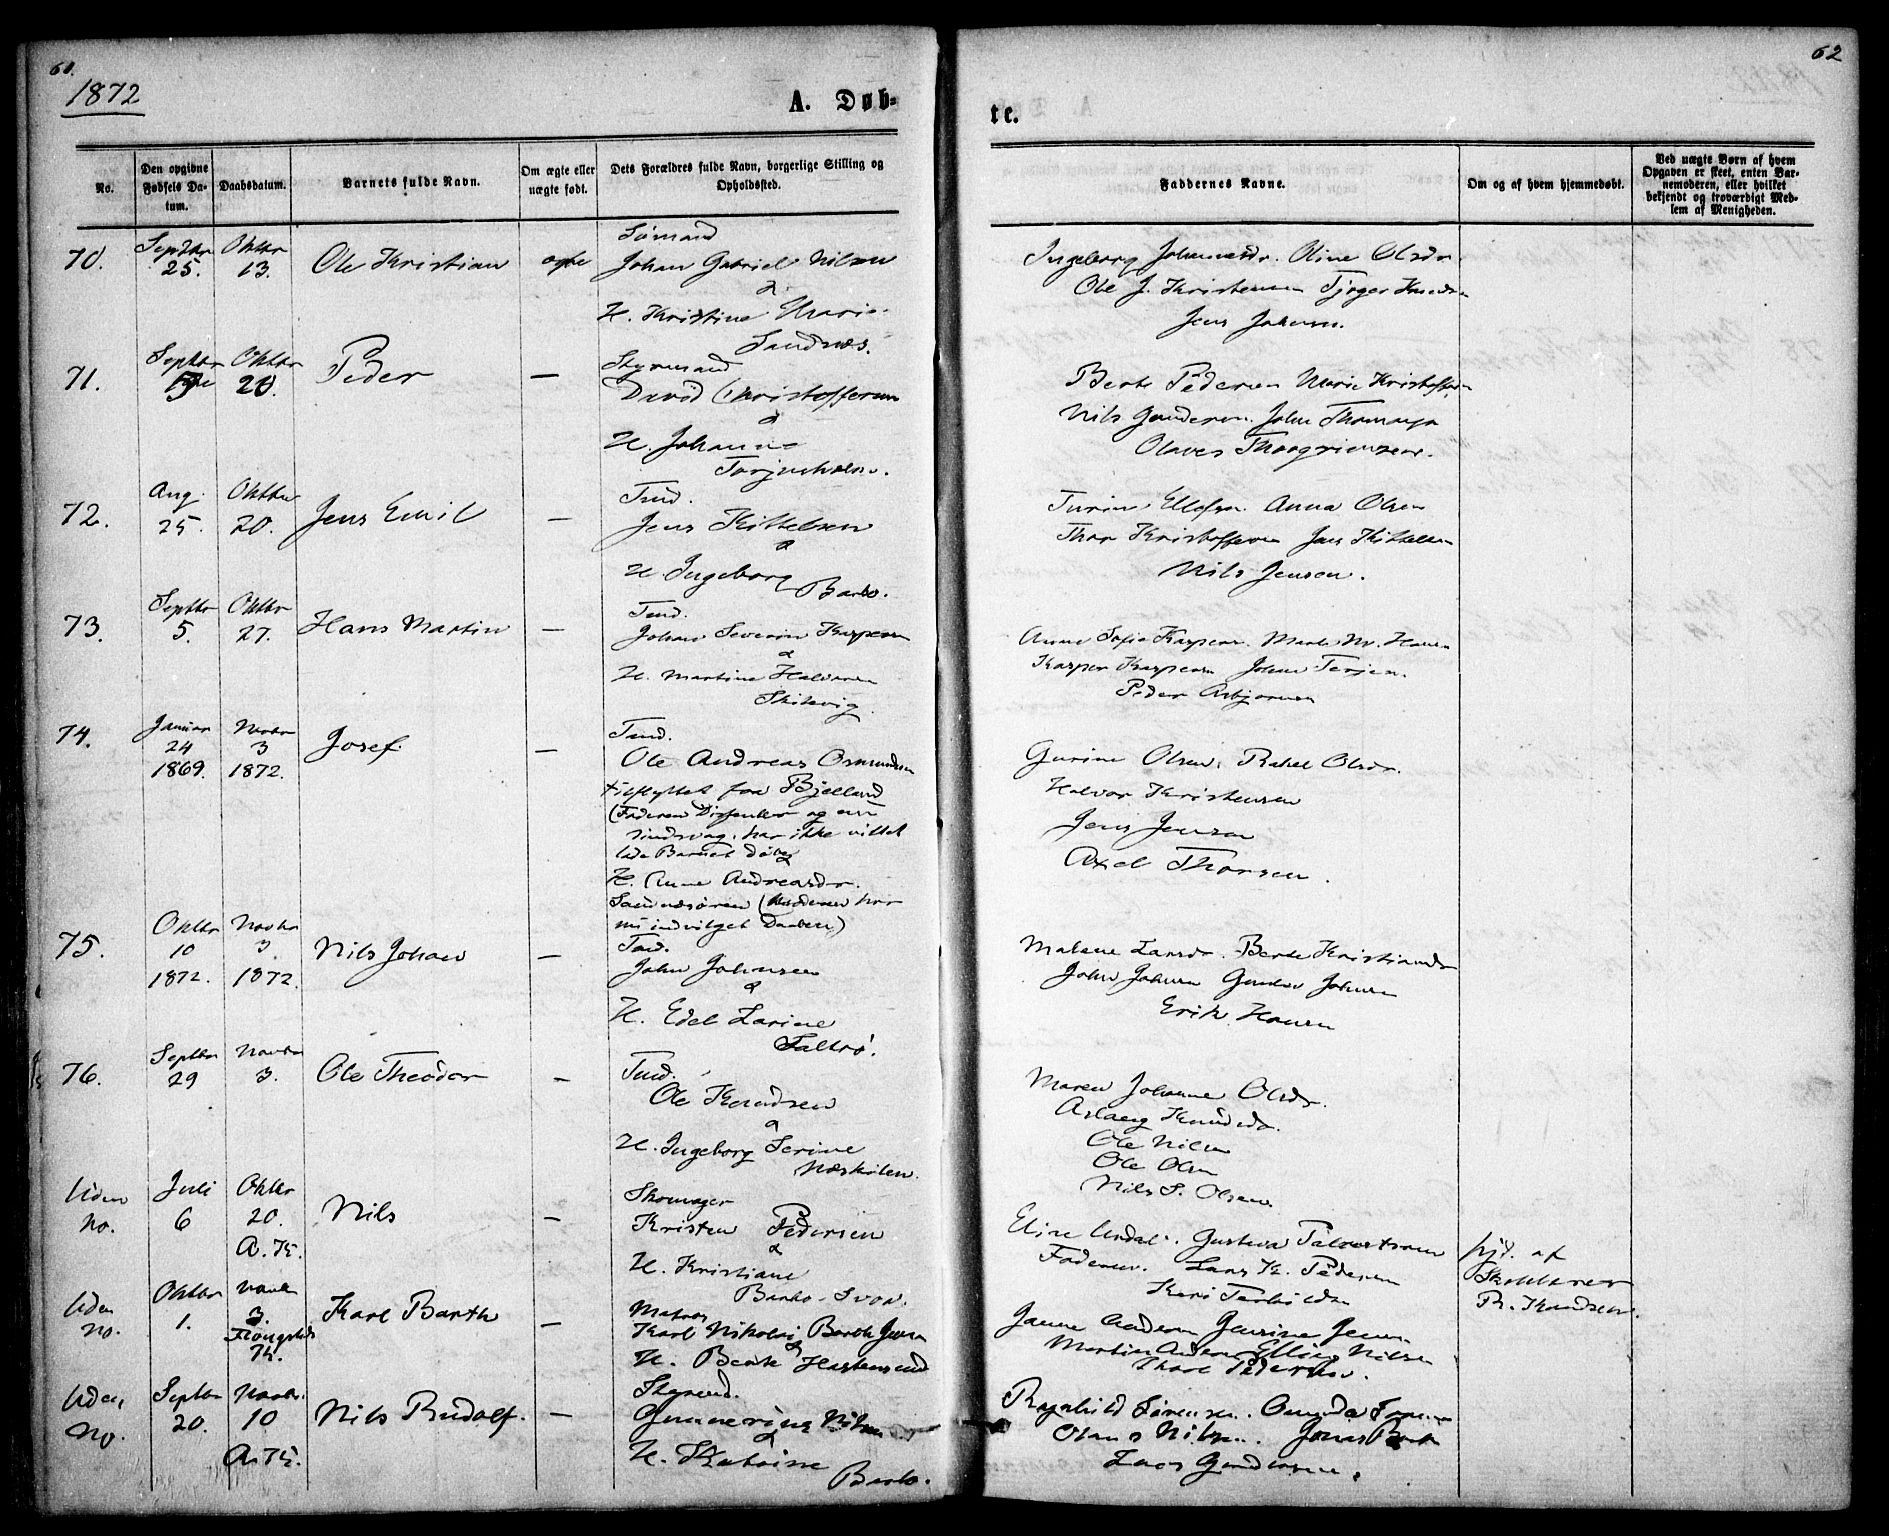 61.
1872
A. Døb-
No.
Den opgivne Fødsels Da-tum.
Daabsdatum.
Barnets fulde Navn.
Om ægte eller uægte født.
Dets Forældres fulde Navn, borgerlige Stilling og Opholdssted.
70.
Septbr 25.
Oktbr 13.
Ole Kristian
ægte
Sømand
Johan Gabriel Nilsen
&
H. Kristine Marie
Sandnæs.
71.
Septbr
Oktbr 20.
Peder
—
Styrmand
David Christoffersen
&
H. Johanne
Torjusholm.
72.
Aug. 25.
Oktbr 20.
Jens Emil
—
Tmd.
Jens Kittelsen
&
H. Ingeborg
Barbo.
73.
Septbr 5.
Oktbr 27.
Hans Martin
—
Tmd.
Johan Severin Kaspersen
&
H. Martine Halvorsen
Skilevig.
74.
Januar 24 1869.
Novbr 3 1872.
Josef
—
Tmd.
Ole Andreas Osmundsen
tilflyttet fra Bjelland
(Faderen Dissenter og en
Sindsvag, har ikke villet
lade Barnet døbe
&
H. Anne Andreasdr.
(Moderen har
nu indvilget Daaben)
75.
Oktbr 10 1872.
Novbr 3. 1872.
Nils Johan
—
Tmd.
John Johnsen
&
H. Edel Larine
Saltrø.
76.
Septbr 29
Novbr 3.
Ole Theodor
—
Tmd.
Ole Knudsen
&
H. Ingeborg Serine
Næskilen.
Uden No.
Juli 6
Oktbr 20. A. K.
Nils
—
Skomager
Kristen Pedersen
&
H. Kristiane
Barbo
Uden No.
Oktbr 1.
Novbr 3.
Karl Barth
—
Matros
Karl Nikolai Barth Jensen
&
H. Berthe Hastensund
Uden No.
Septbr 20.
Novbr 10 A. K.
Nils Rudolf.
—
Styrmd.
Nilsen
&
H. Katrine
Barbo.
62
te.
Faddernes Navne.
Om og af hvem hjemmedøbt.
Ved uægte Børn af hvem
Opgaven er skeet, enten Bar-
nemoderen, eller hvilket
bekjendt og troværdigt Med-
lem af Menigheden.
Ingeborg Johannesdr. Oline Olsdr.
Ole J. Kristensen Tjøger Knudsen
Jens Johnsen.
Berte Pedersen Marie Kristoffersen
Nils Gundersen. John Thomassen
Olaves Thorgrimsen.
Turine Ellefsen Anna Olsen
Thor Kristoffersen Jens Kittelsen
Nils Jensen.
Anne Sofie Kaspersen. Marte M. Hansen
Kasper Kaspersen John Terjesen.
Peder Asbjørnsen
Gurine Olsen. Rakel Olsdr.
Halvor Kristensen
Jens Jensen
Axel Thorsen.
Malene Larsdr. Berte Kristiansdr
John Johnsen Gunder Johnsen
Erik Hansen
Maren Johanne Olsdr.
Aslaug Knudsdr.
Ole Nilsen
Ole Olsen
Nils S. Olsen.
Eline Undal. Gustava
Faderen. Lars K. Pedersen
hjd. af
Skolelærer
R. Knudsen.
Janne Andersen Jensine Jensen
Martin Andersen Elling Nilsen
Thore Pedersen.
Ragnhild Sørensen.
Nilsen. Jonas
Lars Gundersen.